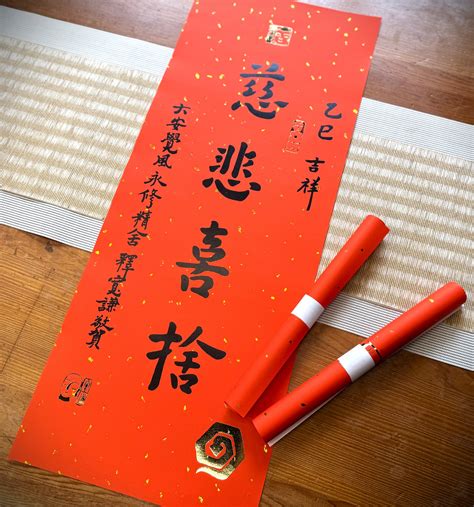 乙巳 吉祥
慈悲喜捨
六安覺風 永修精舍 釋寬謙敬賀